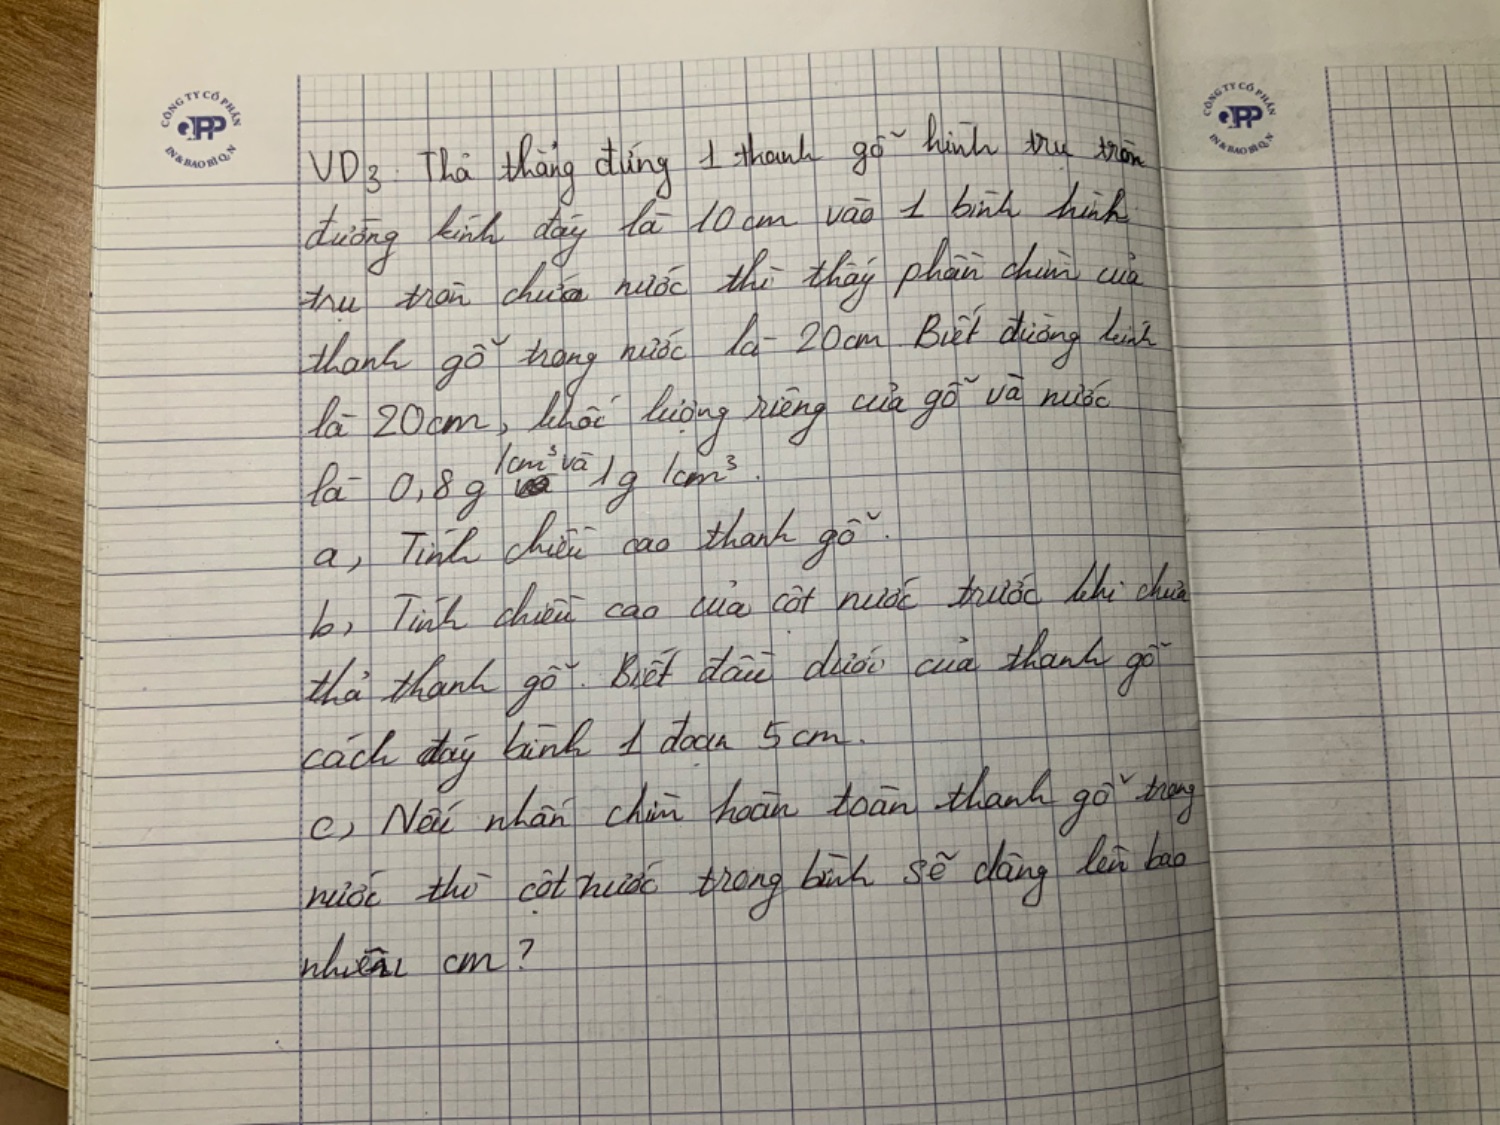 CÔNG TY CỔ PHẦN
QPP
IN & BAO BÌ Q.N
CÔNG TY CỔ PHẦN
QPP
IN & BAO BÌ Q.N
VD3: Thả thẳng đứng 1 thanh gỗ hình trụ tròn
đường kính đáy là 10cm vào 1 bình hình
trụ tròn chứa nước thì thấy phần chìm của
thanh gỗ trong nước là 20cm. Biết đường kính
là 20cm, khối lượng riêng của gỗ và nước
là 0,8g /cm³ và 1g /cm³.
a, Tính chiều cao thanh gỗ.
b, Tính chiều cao của cột nước trước khi chưa
thả thanh gỗ. Biết đầu dưới của thanh gỗ
cách đáy bình 1 đoạn 5cm.
c, Nếu nhấn chìm hoàn toàn thanh gỗ trong
nước thì cột nước trong bình sẽ dâng lên bao
nhiêu cm?